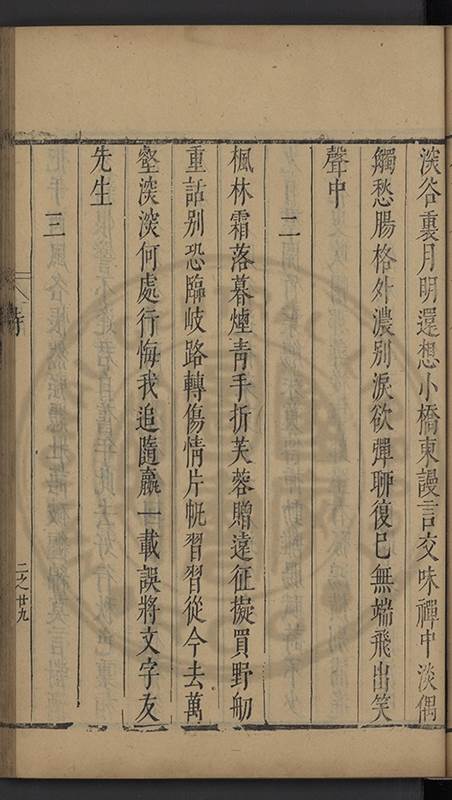 淡谷裏月明還想小橋東謾言交味禪中淡偶
觸愁腸格外濃別淚欲彈聊復已無端飛出笑
聲中
二
楓林霜落暮煙靑手折芙蓉贈遠征擬買野舠
重話別恐臨岐路轉傷情片帆習習從今去萬
壑淡淡何處行悔我追隨纔一載誤將文字友
先生
三
詩
二之廿九